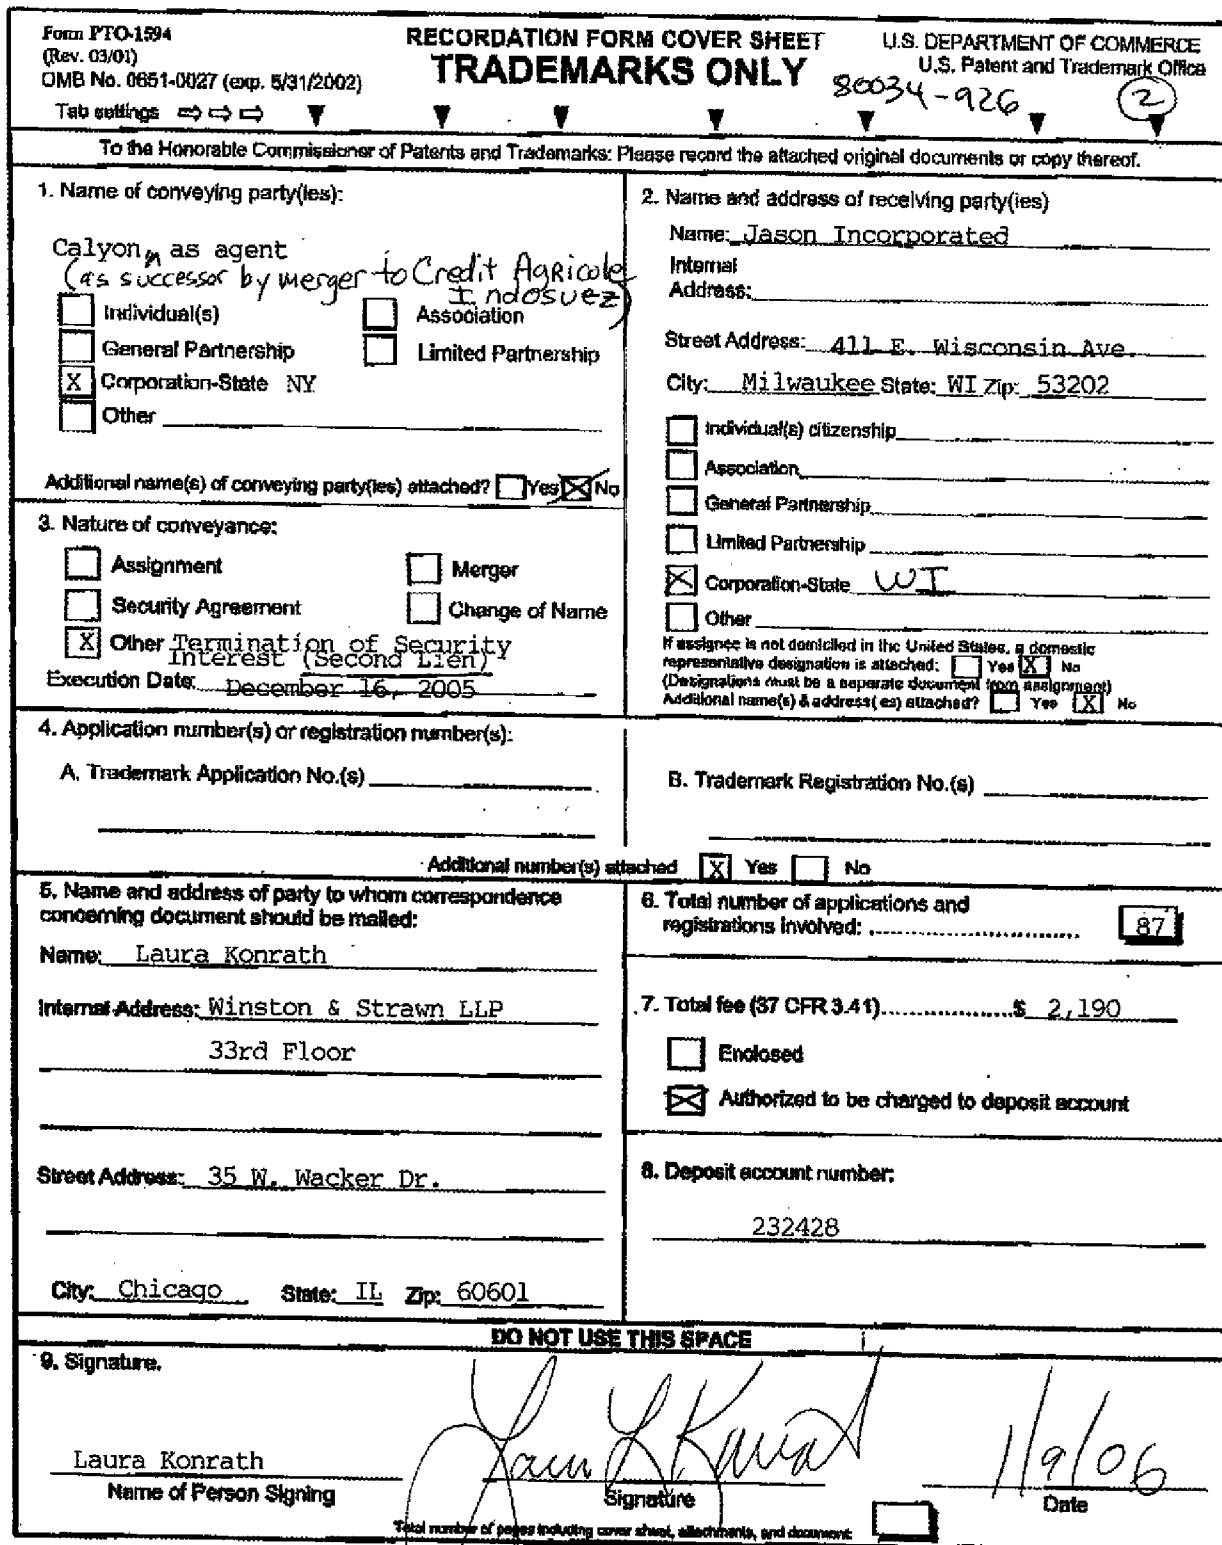 Form PTO-1594
(Rev. 03/01)
OMB No. 0651-0027 (exp. 5/31/2002)
Tab settings
RECORDATION FORM COVER SHEET
TRADEMARKS ONLY
U.S. DEPARTMENT OF COMMERCE
U.S. Patent and Trademark Office
80034-926
2
To the Honorable Commissioner of Patents and Trademarks: Please record the attached original documents or copy thereof.
1. Name of conveying party(ies):
Calyon, as agent
(as successor by merger to Credit Agricole
Indosuez)
Individual(s)
Association
General Partnership
Limited Partnership
X Corporation-State NY
Other
Additional name(s) of conveying party(ies) attached? Yes X No
2. Name and address of receiving party(ies)
Name: Jason Incorporated
Internal
Address:
Street Address: 411 E. Wisconsin Ave.
City: Milwaukee State: WI Zip: 53202
Individual(s) citizenship
Association
General Partnership
Limited Partnership
X Corporation-State WI
Other
If assignee is not domiciled in the United States, a domestic
representative designation is attached: Yes X No
(Designations must be a separate document from assignment)
Additional name(s) & address( es) attached? Yes X No
3. Nature of conveyance:
Assignment
Merger
Security Agreement
Change of Name
X Other Termination of Security
Interest (Second Lien)
Execution Date: December 16, 2005
4. Application number(s) or registration number(s):
A. Trademark Application No.(s)
B. Trademark Registration No.(s)
Additional number(s) attached X Yes No
5. Name and address of party to whom correspondence
concerning document should be mailed:
Name: Laura Konrath
Internal Address: Winston & Strawn LLP
33rd Floor
Street Address: 35 W. Wacker Dr.
City: Chicago State: IL Zip: 60601
6. Total number of applications and
registrations involved: 87
7. Total fee (37 CFR 3.41) $ 2,190
Enclosed
X Authorized to be charged to deposit account
8. Deposit account number:
232428
DO NOT USE THIS SPACE
9. Signature.
Laura Konrath
Name of Person Signing
Signature
1/9/06
Date
Total number of pages including cover sheet, attachments, and document: